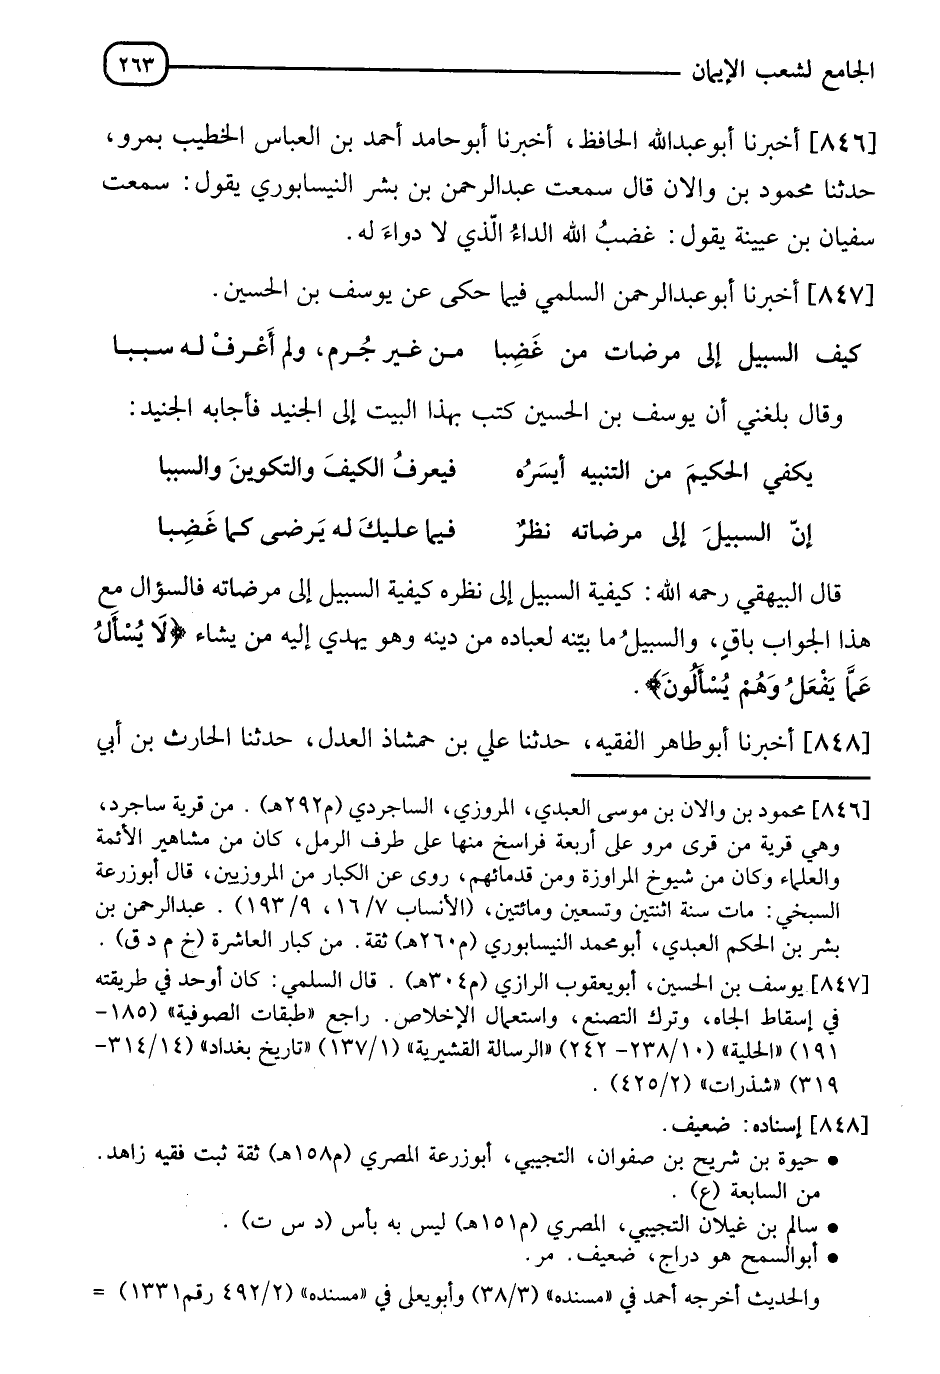 الجامع لشعب الإيمان ٢٦٣
[٨٤٦] أخبرنا أبوعبدالله الحافظ، أخبرنا أبوحامد أحمد بن العباس الخطيب بمرو،
حدثنا محمود بن والان قال سمعت عبدالرحمن بن بشر النيسابوري يقول: سمعت
سفيان بن عيينة يقول: غضبُ الله الداءُ الّذي لا دواءَ له.
[٨٤٧] أخبرنا أبوعبدالرحمن السلمي فيما حكى عن يوسف بن الحسين.
كيف السبيل إلى مرضات من غَضِبا من غير جُرم، ولم أَعْرفْ له سببا
وقال بلغني أن يوسف بن الحسين كتب بهذا البيت إلى الجنيد فأجابه الجنيد:
يكفي الحكيمَ من التنبيه أيسَرُه فيعرفُ الكيفَ والتكوينَ والسببا
إنّ السبيلَ إلى مرضاته نظرٌ فيما عليكَ له يَرضى كما غَضِبا
قال البيهقي رحمه الله: كيفية السبيل إلى نظره كيفية السبيل إلى مرضاته فالسؤال مع
هذا الجواب باقٍ، والسبيلُ ما بيّنه لعباده من دينه وهو يهدي إليه من يشاء ﴿لَا يُسْأَلُ
عَمَّا يَفْعَلُ وَهُمْ يُسْأَلُونَ﴾.
[٨٤٨] أخبرنا أبوطاهر الفقيه، حدثنا علي بن حمشاذ العدل، حدثنا الحارث بن أبي
[٨٤٦] محمود بن والان بن موسى العبدي، المروزي، الساجردي (م٢٩٢هـ). من قرية ساجرد،
وهي قرية من قرى مرو على أربعة فراسخ منها على طرف الرمل، كان من مشاهير الأئمة
والعلماء وكان من شيوخ المراوزة ومن قدمائهم، روى عن الكبار من المروزيين، قال أبوزرعة
السبخي: مات سنة اثنتين وتسعين ومائتين، (الأنساب ١٦/٧، ١٩٣/٩). عبدالرحمن بن
بشر بن الحكم العبدي، أبومحمد النيسابوري (م٢٦٠هـ) ثقة. من كبار العاشرة (خ م د ق).
[٨٤٧] يوسف بن الحسين، أبويعقوب الرازي (م٣٠٤هـ). قال السلمي: كان أوحد في طريقته
في إسقاط الجاه، وترك التصنع، واستعمال الإخلاص. راجع «طبقات الصوفية» (١٨٥-
١٩١) «الحلية» (٢٣٨/١٠- ٢٤٢) «الرسالة القشيرية» (١٣٧/١) «تاريخ بغداد» (٣١٤/١٤-
٣١٩) «شذرات» (٤٢٥/٢).
[٨٤٨] إسناده: ضعيف.
• حيوة بن شريح بن صفوان، التجيبي، أبوزرعة المصري (م١٥٨هـ) ثقة ثبت فقيه زاهد.
من السابعة (ع).
• سالم بن غيلان التجيبي، المصري (م١٥١هـ) ليس به بأس (د س ت).
• أبوالسمح هو دراج، ضعيف. مر.
والحديث أخرجه أحمد في «مسنده» (٣٨/٣) وأبويعلى في «مسنده» (٤٩٢/٢ رقم١٣٣١) =